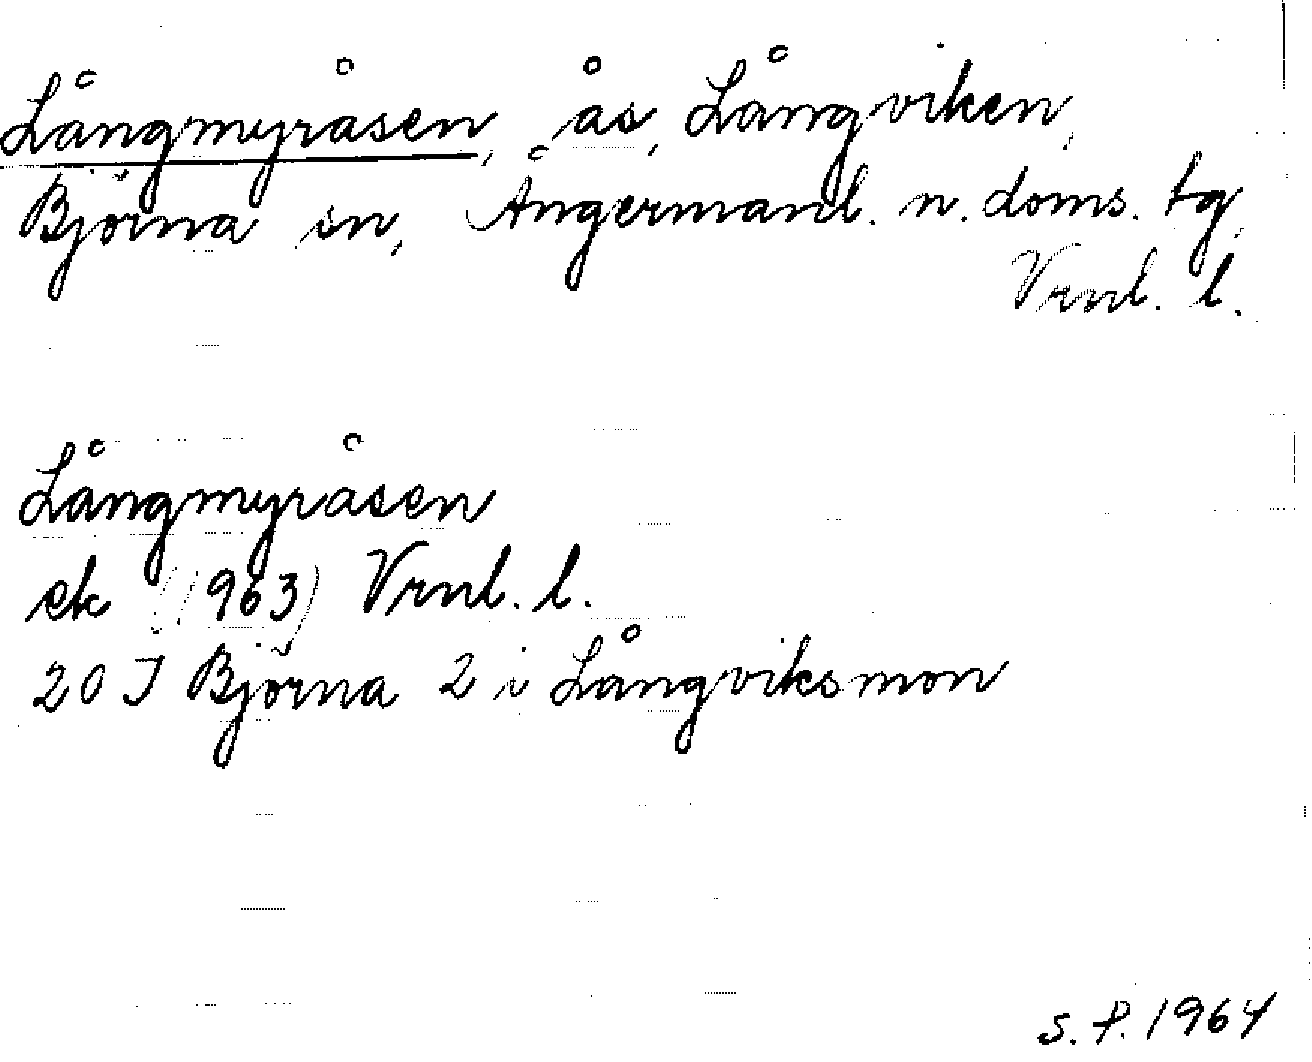 Långmyråsen, ås, Långviken,
Björna sn, Ångermanl. n. doms. tg.
Vrnl. l.
Långmyråsen
ek (1963) Vrnl. l.
20 I Björna 2 i Långviksmon
S. P. 1964